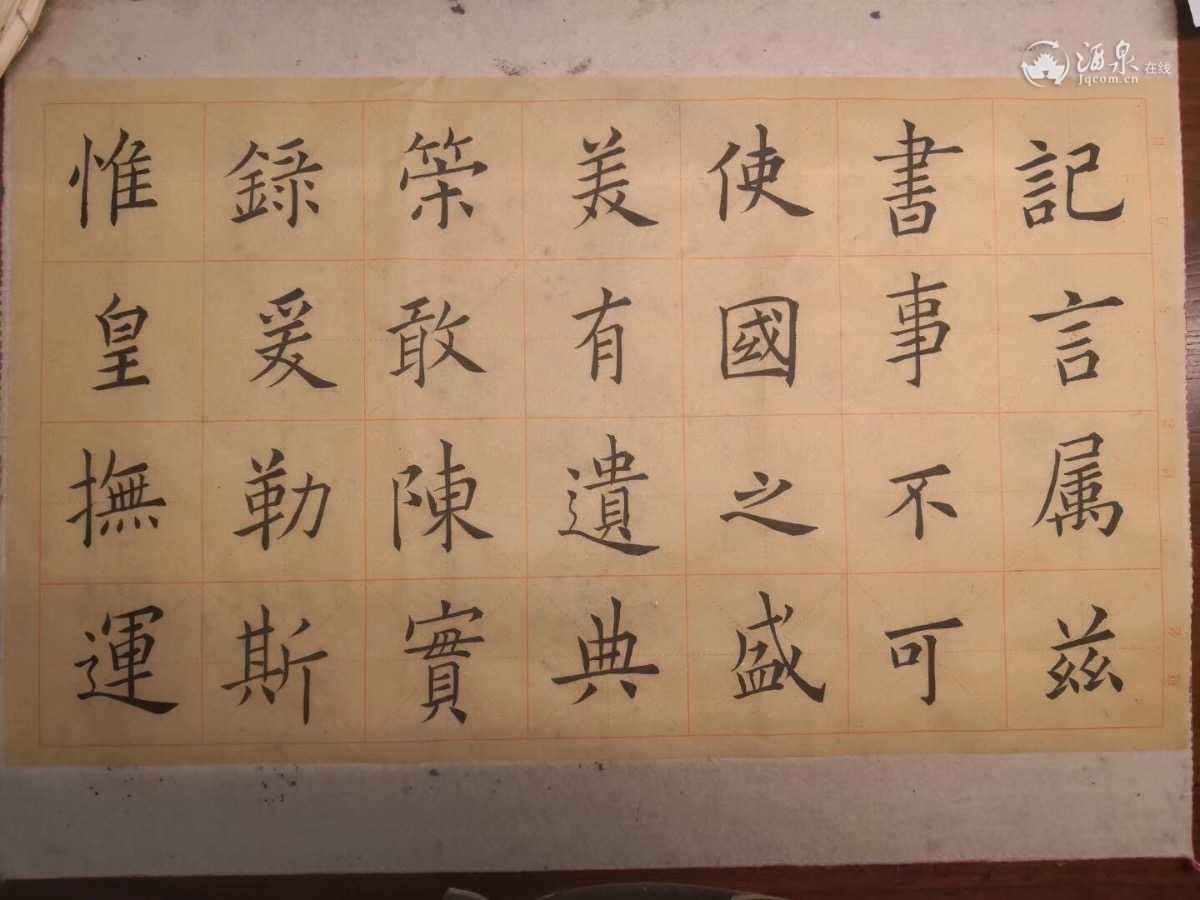 記言属茲
書事不可
使國之盛
美有遺典
策敢陳實
録爰勒斯
惟皇撫運
酒泉在线
Jqcom.cn